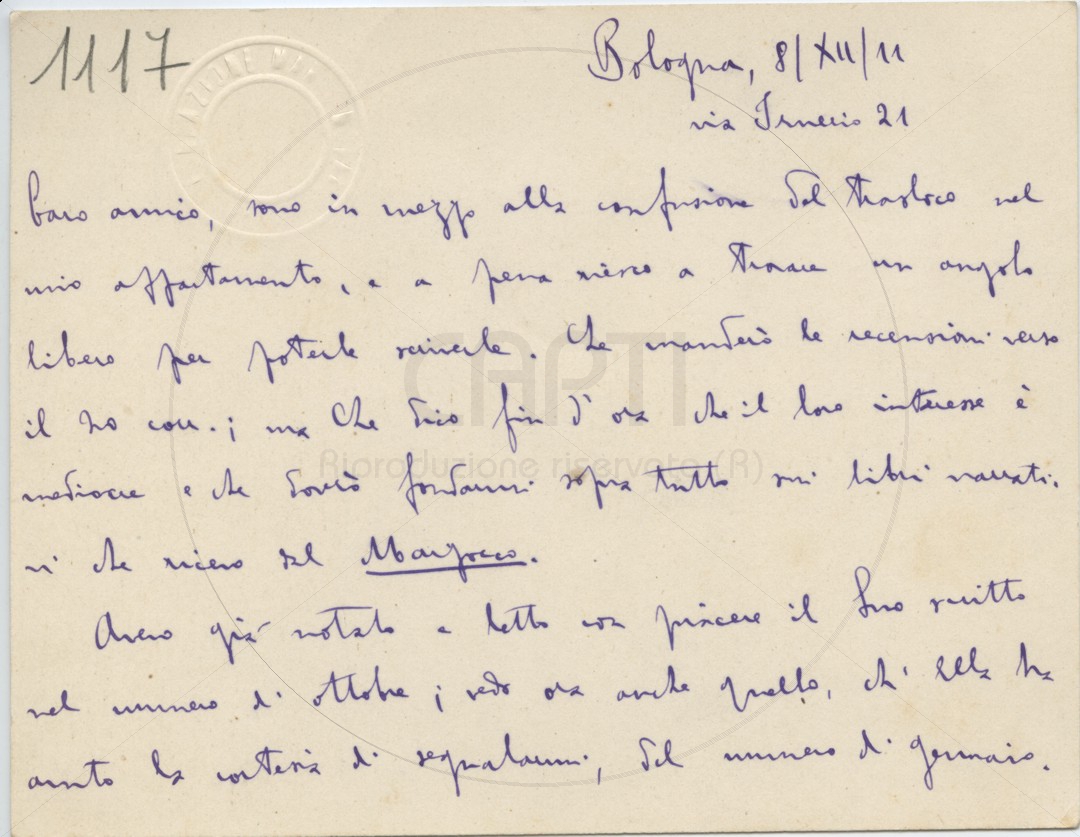 1117
Bologna, 8/XII/11
via Irnerio 21
Caro amico, sono in mezzo alla confusione del trasloco nel
mio appartamento, e a pena riesco a trovare un angolo
libero per poterle scriverle. Le manderò le recensioni verso
il 20 corr.; ma Le dico fin d'ora che il loro interesse è
mediocre e che dovrò fondarmi sopra tutto sui libri narrati-
vi che ricevo dal Marzocco.
Avevo già notato e letto con piacere il Suo scritto
nel numero di ottobre; vedo ora anche quello, ch' Ella ha
avuto la cortesia di segnalarmi, del numero di gennaio.
CAPTI
Riproduzione riservata (R)